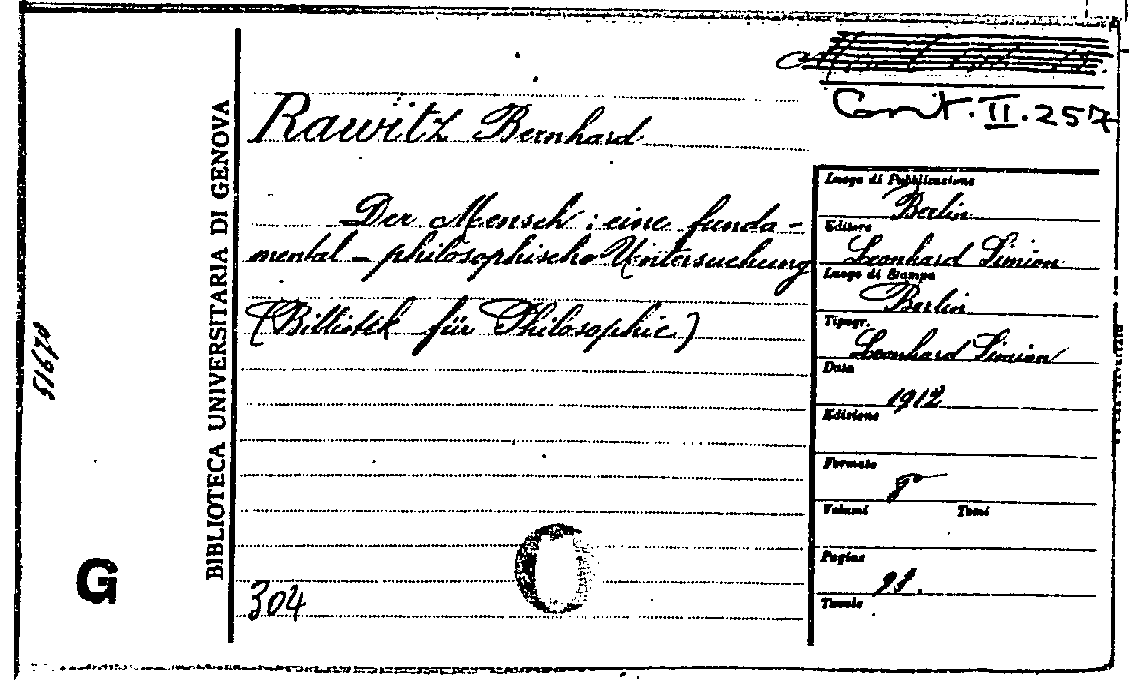 Cont. II. 257
Rawitz Bernhard
Der Mensch : eine funda-
mental - philosophische Untersuchung
(Bibliotek für Philosophie)
304
BIBLIOTECA UNIVERSITARIA DI GENOVA
51670
G
Luogo di Pubblicazione
Berlin
Editore
Leonhard Simion
Luogo di Stampa
Berlin
Tipogr.
Leonhard Simion
Data
1912
Edizione
Formato
8°
Volumi Tomi
Pagine
Tavole